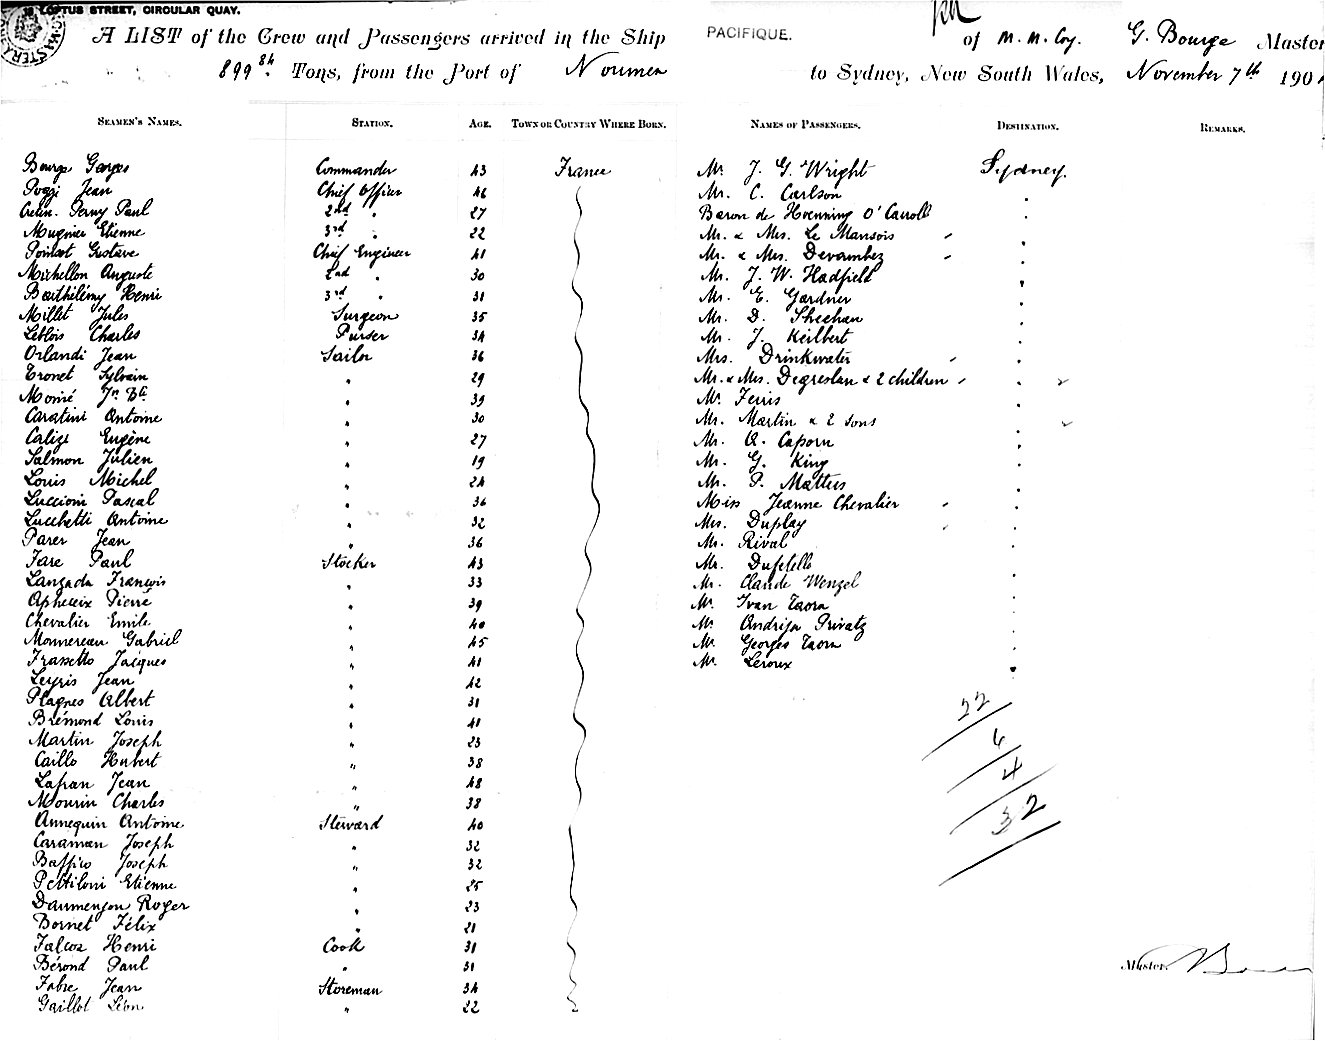 LOFTUS STREET, CIRCULAR QUAY.
A LIST of the Crew and Passengers arrived in the Ship PACIFIQUE. of M. M. Coy. G. Bourge Master
899 84 Tons, from the Port of Noumea to Sydney, New South Wales, November 7th 190
SEAMEN'S NAMES. STATION. AGE. TOWN OR COUNTRY WHERE BORN.
Bourge Georges Commander 43 France
Poggi Jean Chief Officer 46
Perny Paul 2nd " 27
Mugnier Etienne 3rd " 22
Gustave Chief Engineer 41
Michellon Auguste 2nd " 30
Barthélémy Henri 3rd " 31
Millet Jules Surgeon 35
Leblois Charles Purser 34
Orlandi Jean Sailor 36
Tronet Sylvain " 29
Momé Jn Bte " 39
Caratini Antoine " 30
Calizi Eugène " 27
Salmon Julien " 19
Louis Michel " 24
Luccioni Pascal " 36
Lucchetti Antoine " 32
Parer Jean " 36
Fare Paul Stocker 43
Lanzada François " 33
Apheceix Pierre " 39
Chevalier Emile " 40
Monnereau Gabriel " 45
Frassetto Jacques " 41
Leyris Jean " 42
Plagnes Albert " 31
Brémond Louis " 41
Martin Joseph " 23
Caillo Hubert " 38
Lafran Jean " 48
Mourin Charles " 38
Annequin Antoine Steward 40
Caraman Joseph " 32
Baffico Joseph " 32
Pettiloni Etienne " 25
Daumenjon Roger " 23
Bornet Félix " 21
Falcoz Henri Cook 31
Bérond Paul " 31
Fabre Jean Storeman 34
Gaillot Léon " 22
NAMES OF PASSENGERS. DESTINATION. REMARKS.
Mr. J. G. Wright Sydney.
Mr. C. Carlson "
Baron de Hoenning O'Carroll "
Mr. & Mrs. Le Mansois "
Mr. & Mrs. Devambez "
Mr. J. W. Hadfield "
Mr. E. Gardner "
Mr. D. Sheehan "
Mr. J. Keilbert "
Mrs. Drinkwater "
Mr. & Mrs. Degreslan & 2 children "
Mr. Ferris "
Mr. Martin & 2 sons "
Mr. A. Caporn "
Mr. G. King "
Mr. P. Matters "
Miss Jeanne Chevalier "
Mrs. Duplay "
Mr. Rival "
Mr. "
Mr. Claude Wenzel "
Mr. Ivan Taora "
Mr. Andrija Privatz "
Mr. Georges Taora "
Mr. Leroux "
22
6
4
32
Master.